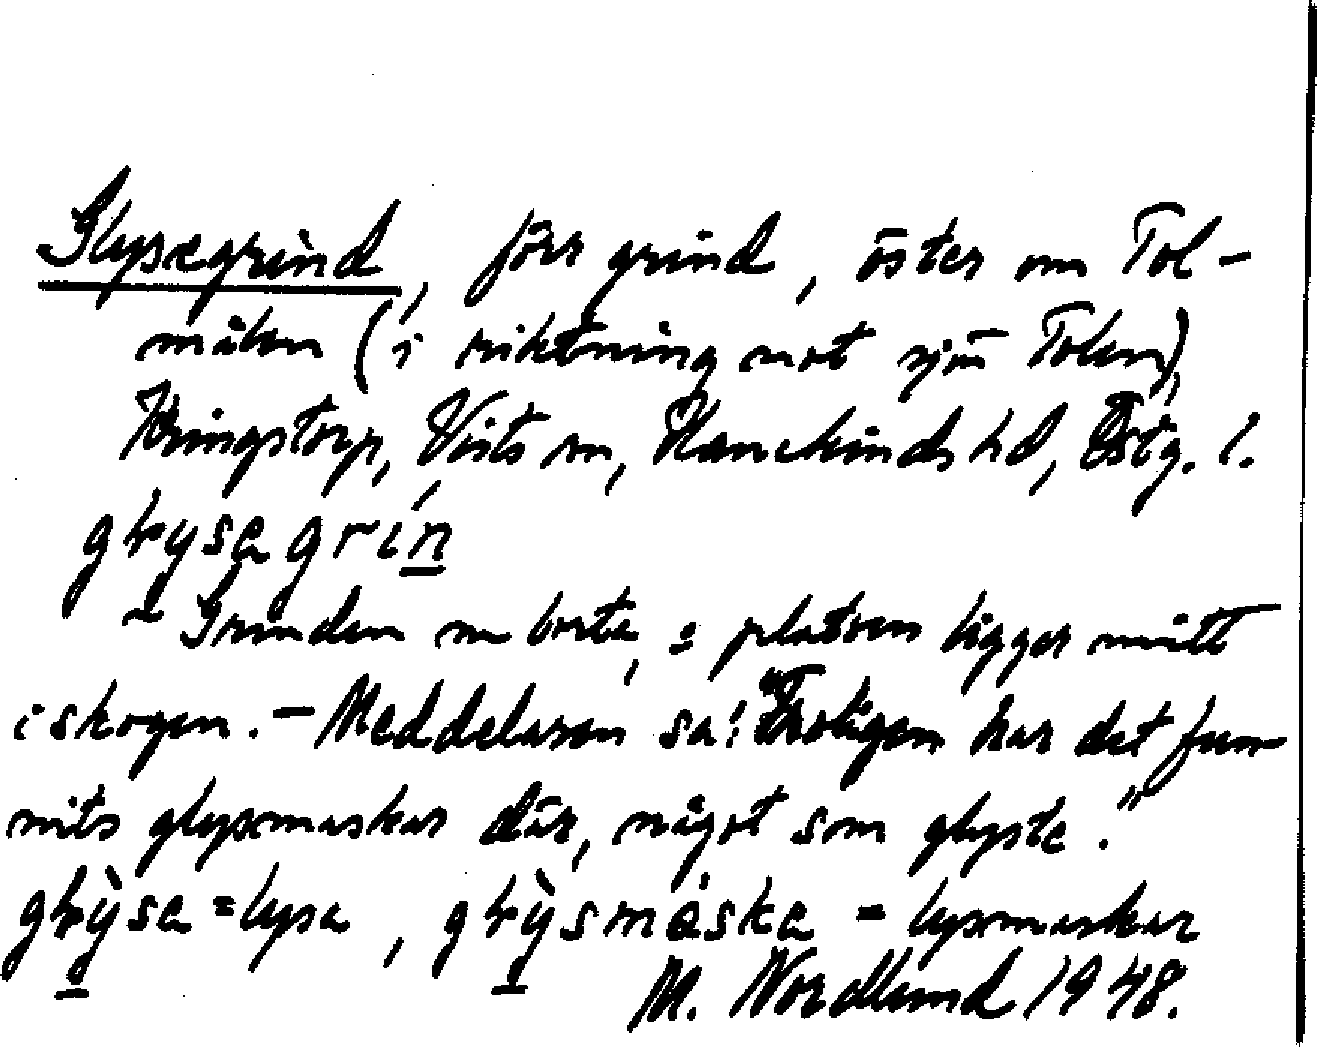 Glysegrind, förr grind, öster om Tol-
målen (i riktning mot sjön Tolen),
Kringstorp, Vists sn, Hanekinds hd, Östg. l.
glysagrin
~ Grinden nu borta, platsen ligger mitt
i skogen. – Meddelaren sa: "Troligen har det fun-
nits glysmaskar där, något som glyste."
glỳsa = lysa, glỳsmáska = lysmaskar
M. Nordlund 1948.